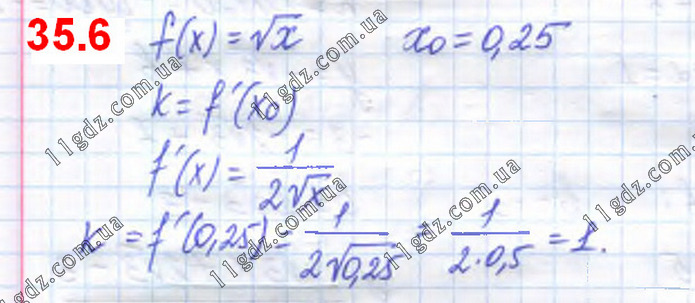 35.6 f(x) = √x x₀ = 0,25
k = f'(x₀)
f'(x) = 1/(2√x)
k = f'(0,25) = 1/(2√0,25) = 1/(2·0,5) = 1.
11gdz.com.ua
11gdz.com.ua
11gdz.com.ua
11gdz.com.ua
11gdz.com.ua
11gdz.com.ua